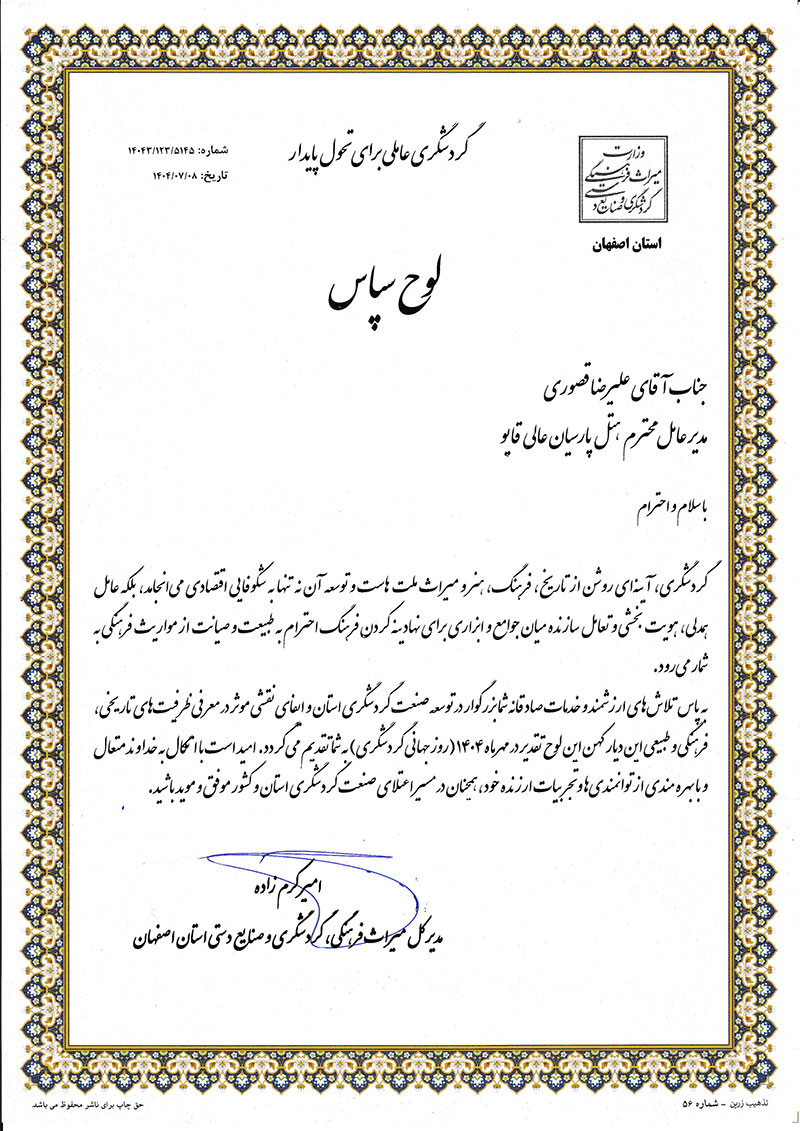 وزارت
میراث فرهنگی
گردشگری و صنایع دستی
استان اصفهان
گردشگری عاملی برای تحول پایدار
شماره: ۱۴۰۴۳/۱۲۳/۵۱۴۵
تاریخ: ۱۴۰۴/۰۷/۰۸
لوح سپاس
جناب آقای علیرضا قصوری
مدیرعامل محترم هتل پارسیان عالی قاپو
با سلام و احترام
گردشگری، آینه‌ای روشن از تاریخ، فرهنگ، هنر و میراث ملت هاست و توسعه آن نه تنها به شکوفایی اقتصادی می‌انجامد، بلکه عامل
همدلی، هویت بخشی و تعامل سازنده میان جوامع و ابزاری برای نهادینه کردن فرهنگ احترام به طبیعت و صیانت از مواریث فرهنگی به
شمار می‌رود.
به پاس تلاش‌های ارزشمند و خدمات صادقانه شما بزرگوار در توسعه صنعت گردشگری استان و ایفای نقشی موثر در معرفی ظرفیت‌های تاریخی،
فرهنگی و طبیعی این دیار کهن این لوح تقدیر در مهرماه ۱۴۰۴ (روز جهانی گردشگری) به شما تقدیم می‌گردد. امید است با اتکال به خداوند متعال
و با بهره مندی از توانمندی‌ها و تجربیات ارزنده خود، همچنان در مسیر اعتلای صنعت گردشگری استان و کشور موفق و موید باشید.
امیر کرم زاده
مدیرکل میراث فرهنگی، گردشگری و صنایع دستی استان اصفهان
تذهیب زرین - شماره ۵۶
حق چاپ برای ناشر محفوظ می باشد.